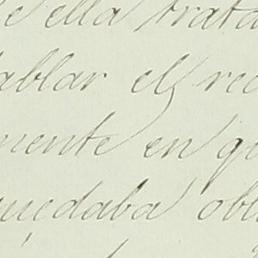 e ella trata
ablar el rec
mente en qu
quedaba obl